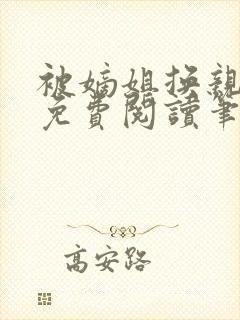 被嫡姐换親
免費閱讀筆
高安路